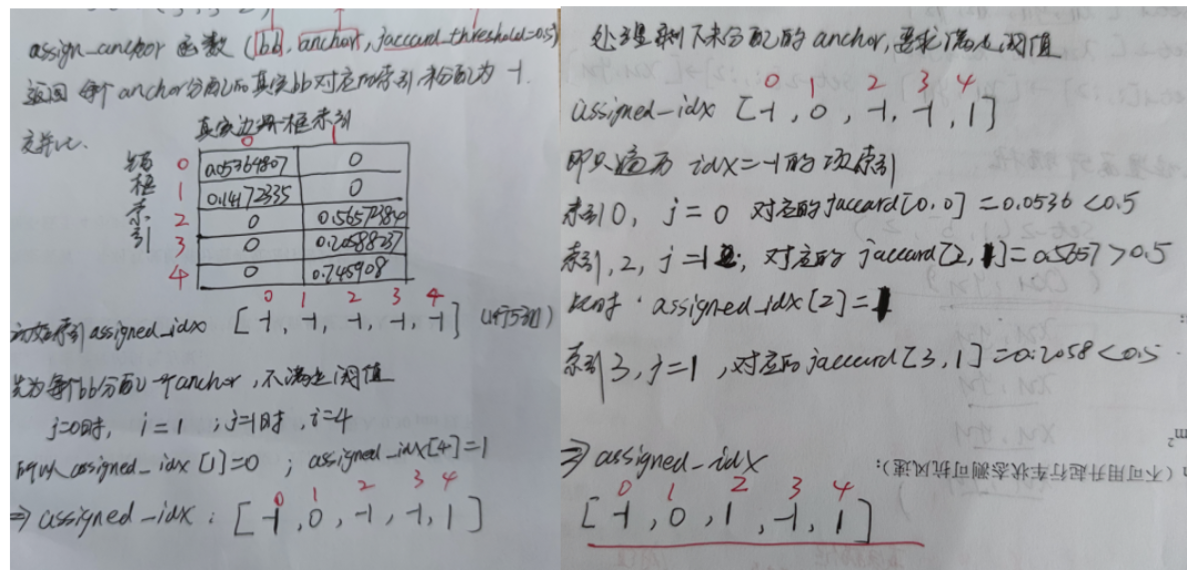 assign_anchor 函数 (bb, anchor, jaccard_threshold=0.5)
返回 每个anchor分配的真实bb对应的索引,未分配为 -1.
交并比.
真实边界框索引
0 1
锚框索引
0 0.05364807 0
1 0.14172335 0
2 0 0.5657384
3 0 0.20588237
4 0 0.745908
0 1 2 3 4
初始索引assigned_idx [-1, -1, -1, -1, -1] (1行5列)
先为每个bb分配一个anchor,不满足阈值
j=0时, i=1 ; j=1时, i=4
所以 assigned_idx[1]=0 ; assigned_idx[4]=1
0 1 2 3 4
⇒ assigned_idx : [-1, 0, -1, -1, 1]
处理剩下未分配的anchor,要求满足阈值
0 1 2 3 4
assigned_idx [-1, 0, -1, -1, 1]
即只遍历 idx=-1的项索引
索引0, j=0 对应的jaccard[0,0]=0.0536<0.5
索引,2, j=1 ; 对应的 jaccard[2,1]=0.5657>0.5
此时 assigned_idx[2]=1
索引3, j=1 ,对应的jaccard[3,1]=0.2058<0.5
⇒ assigned_idx
0 1 2 3 4
[-1, 0, 1, -1, 1]
m²
(不可用升起行车状态测可抗风速):